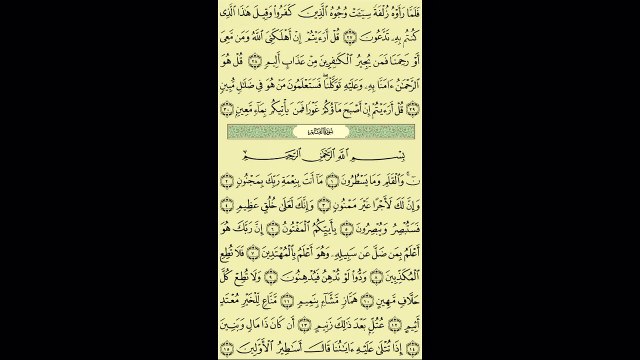 فَلَمَّا رَأَوْهُ زُلْفَةً سِيٓـَٔتْ وُجُوهُ ٱلَّذِينَ كَفَرُوا۟ وَقِيلَ هَٰذَا ٱلَّذِى
كُنتُم بِهِۦ تَدَّعُونَ ٢٧ قُلْ أَرَءَيْتُمْ إِنْ أَهْلَكَنِىَ ٱللَّهُ وَمَن مَّعِىَ
أَوْ رَحِمَنَا فَمَن يُجِيرُ ٱلْكَٰفِرِينَ مِنْ عَذَابٍ أَلِيمٍ ٢٨ قُلْ هُوَ
ٱلرَّحْمَٰنُ ءَامَنَّا بِهِۦ وَعَلَيْهِ تَوَكَّلْنَا ۖ فَسَتَعْلَمُونَ مَنْ هُوَ فِى ضَلَٰلٍ مُّبِينٍ
٢٩ قُلْ أَرَءَيْتُمْ إِنْ أَصْبَحَ مَآؤُكُمْ غَوْرًا فَمَن يَأْتِيكُم بِمَآءٍ مَّعِينٍۭ ٣٠
سُورَةُ القَلَمِ
بِسْمِ ٱللَّهِ ٱلرَّحْمَٰنِ ٱلرَّحِيمِ
نٓ ۚ وَٱلْقَلَمِ وَمَا يَسْطُرُونَ ١ مَآ أَنتَ بِنِعْمَةِ رَبِّكَ بِمَجْنُونٍ ٢
وَإِنَّ لَكَ لَأَجْرًا غَيْرَ مَمْنُونٍ ٣ وَإِنَّكَ لَعَلَىٰ خُلُقٍ عَظِيمٍ ٤
فَسَتُبْصِرُ وَيُبْصِرُونَ ٥ بِأَييِّكُمُ ٱلْمَفْتُونُ ٦ إِنَّ رَبَّكَ هُوَ
أَعْلَمُ بِمَن ضَلَّ عَن سَبِيلِهِۦ وَهُوَ أَعْلَمُ بِٱلْمُهْتَدِينَ ٧ فَلَا تُطِعِ
ٱلْمُكَذِّبِينَ ٨ وَدُّوا۟ لَوْ تُدْهِنُ فَيُدْهِنُونَ ٩ وَلَا تُطِعْ كُلَّ
حَلَّافٍ مَّهِينٍ ١٠ هَمَّازٍ مَّشَّآءٍۭ بِنَمِيمٍ ١١ مَّنَّاعٍ لِّلْخَيْرِ مُعْتَدٍ
أَثِيمٍ ١٢ عُتُلٍّۭ بَعْدَ ذَٰلِكَ زَنِيمٍ ١٣ أَن كَانَ ذَا مَالٍ وَبَنِينَ
١٤ إِذَا تُتْلَىٰ عَلَيْهِ ءَايَٰتُنَا قَالَ أَسَٰطِيرُ ٱلْأَوَّلِينَ ١٥